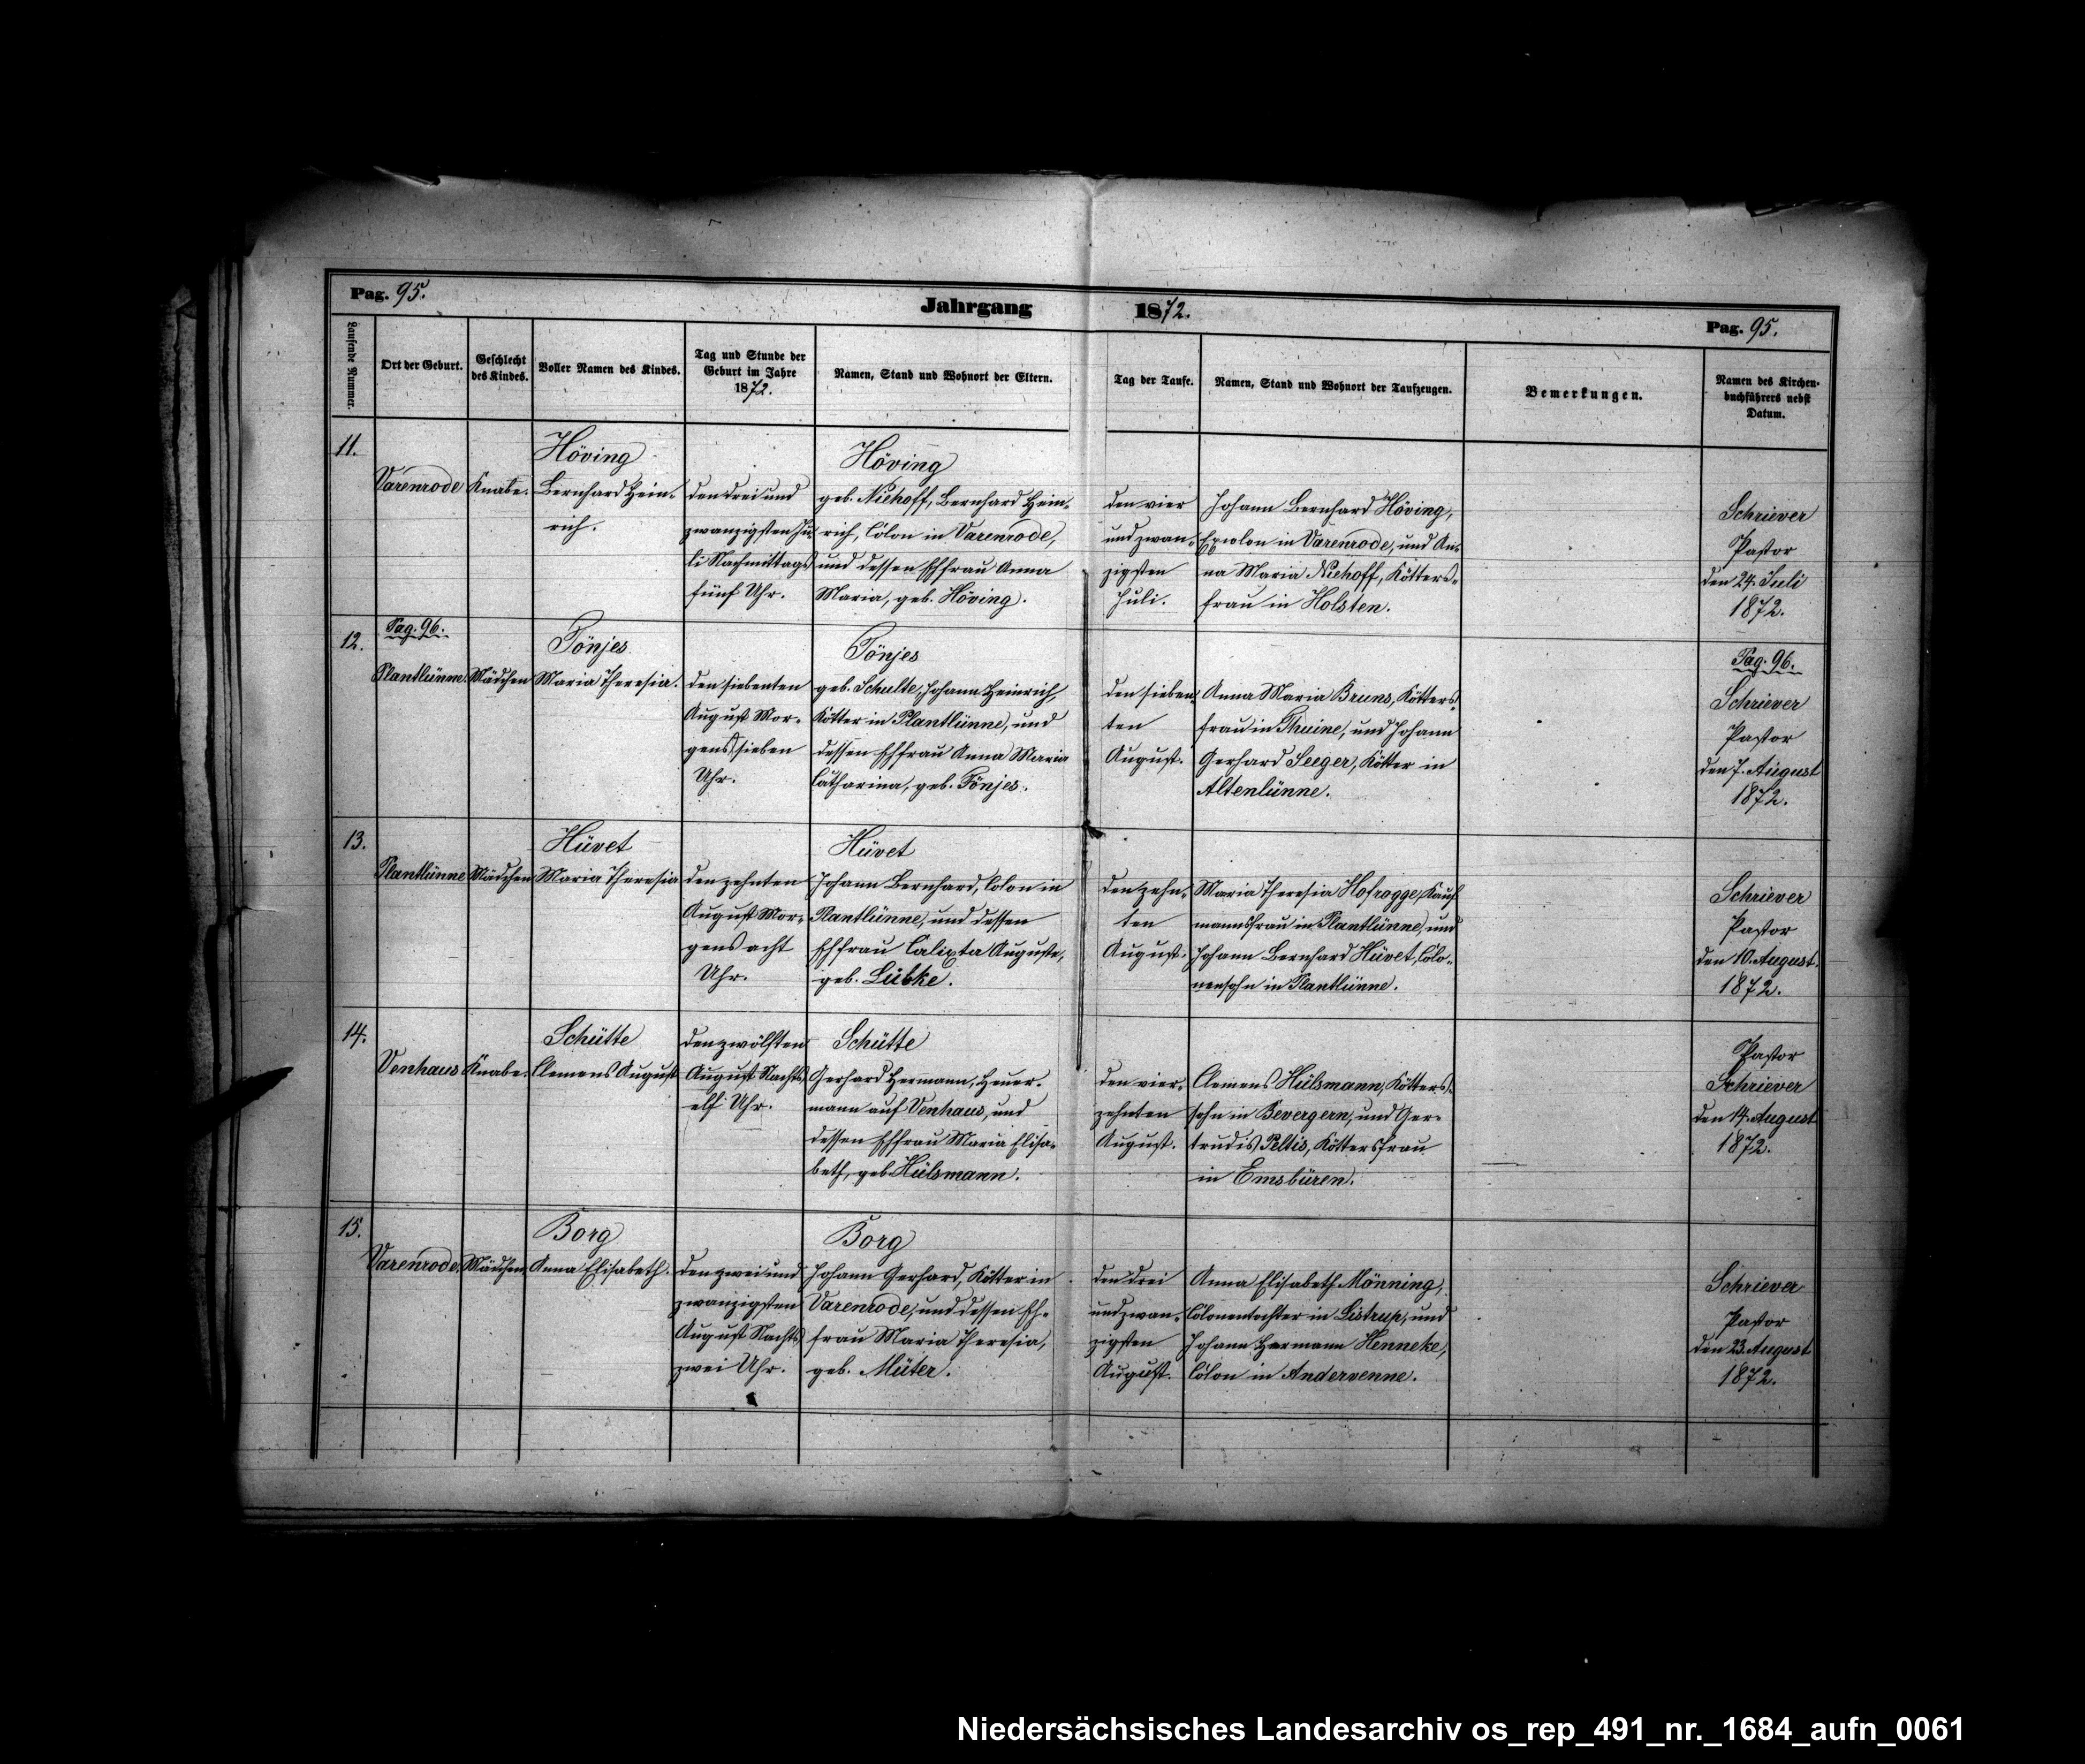 Pag. 95.
Jahrgang 1872.
Pag. 95.
Laufende Nummer.
Ort der Geburt.
Geschlecht
des Kindes.
Voller Namen des Kindes.
Tag und Stunde der
Geburt im Jahre
1872.
Namen, Stand und Wohnort der Eltern.
Tag der Taufe.
Namen, Stand und Wohnort der Taufzeugen.
Bemerkungen.
Namen des Kirchen-
buchführers nebst
Datum.
11.
Varenrode
Knabe.
Höving
Bernhard Hein-
rich.
den drei und
zwanzigsten Ju-
li Nachmittags
fünf Uhr.
Höving
geb. Niehoff, Bernhard Hein-
rich, Colon in Varenrode,
und dessen Ehfrau Anna
Maria, geb. Höving.
den vier
und zwan-
zigsten
Juli.
Johann Bernhard Höving,
Excolon in Varenrode, und An-
na Maria Niehoff, Kötters-
frau in Holsten.
Schriever
Pastor
den 24. Juli
1872.
12.
Pag. 96.
Plantlünne.
Mädchen
Tönjes
Maria Theresia.
den siebenten
August Mor-
gens sieben
Uhr.
Tönjes
geb. Schulte, Johann Heinrich,
Kötter in Plantlünne, und
dessen Ehfrau Anna Maria
Catharina, geb. Tönjes.
den sieben-
ten
August.
Anna Maria Bruns, Kötters-
frau in Thuine, und Johann
Gerhard Seeger, Kötter in
Altenlünne.
Pag. 96.
Schriever
Pastor
den 7. August
1872.
13.
Plantlünne
Mädchen
Hüvet
Maria Theresia
den zehnten
August Mor-
gens acht
Uhr.
Hüvet
Johann Bernhard, Colon in
Plantlünne, und dessen
Ehfrau Calixta Auguste,
geb. Lübke.
den zehn-
ten
August.
Maria Theresia Hofrogge, Kauf
mannsfrau in Plantlünne, und
Johann Bernhard Hüvet, Colo-
nensohn in Plantlünne.
Schriever
Pastor
den 10. August.
1872.
14.
Venhaus
Knabe.
Schütte
Clemens August
den zwölften
August Nachts
elf Uhr.
Schütte
Gerhard Hermann, Heuer-
mann auf Venhaus, und
dessen Ehfrau Maria Elisa-
beth, geb. Hülsmann.
den vier-
zehnten
August.
Clemens Hülsmann, Kötters-
sohn in Bevergern, und Ger-
trudis Peltis, Köttersfrau
in Emsbüren.
Pastor
Schriever
den 14. August
1872.
15.
Varenrode.
Mädchen.
Borg
Anna Elisabeth.
den zwei und
zwanzigsten
August Nachts
zwei Uhr.
Borg
Johann Gerhard, Kötter in
Varenrode, und dessen Eh-
frau Maria Theresia,
geb. Müter.
den drei
und zwan-
zigsten
August.
Anna Elisabeth Mönning,
Colonentochter in Listrup, und
Johann Hermann Henneke,
Colon in Andervenne.
Schriever
Pastor
den 23. August
1872.
Niedersächsisches Landesarchiv os_rep_491_nr._1684_aufn_0061